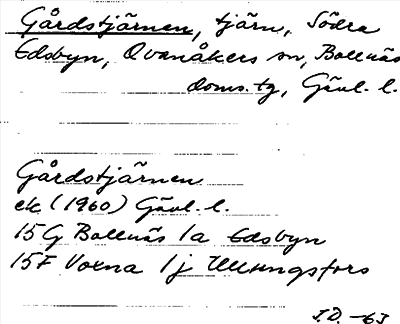 Gårdstjärnen, tjärn, Södra
Edsbyn, Ovanåkers sn, Bollnäs
doms.tg, Gävl. l.
Gårdstjärnen
ek (1960) Gävl. l.
15G Bollnäs 1a Edsbyn
15F Voxna 1j Ullungsfors
J.D. -63